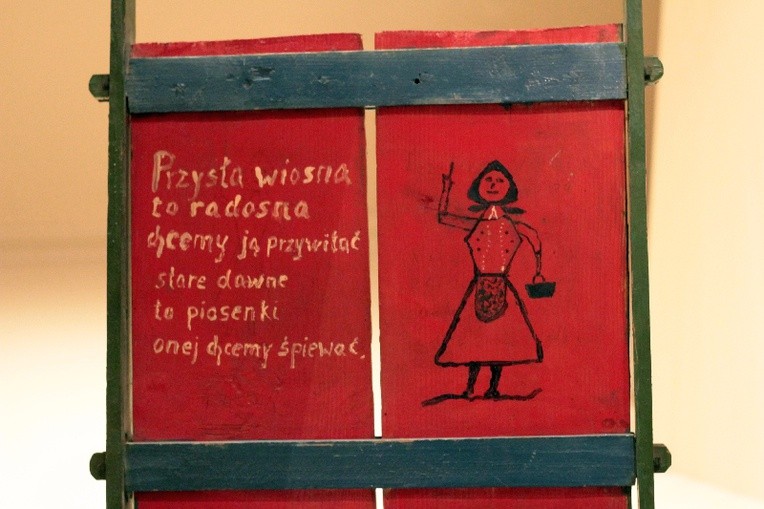 Przysła wiosna
to radosna
chcemy ją przywitać
stare dawne
to piosenki
onej chcemy śpiewać.